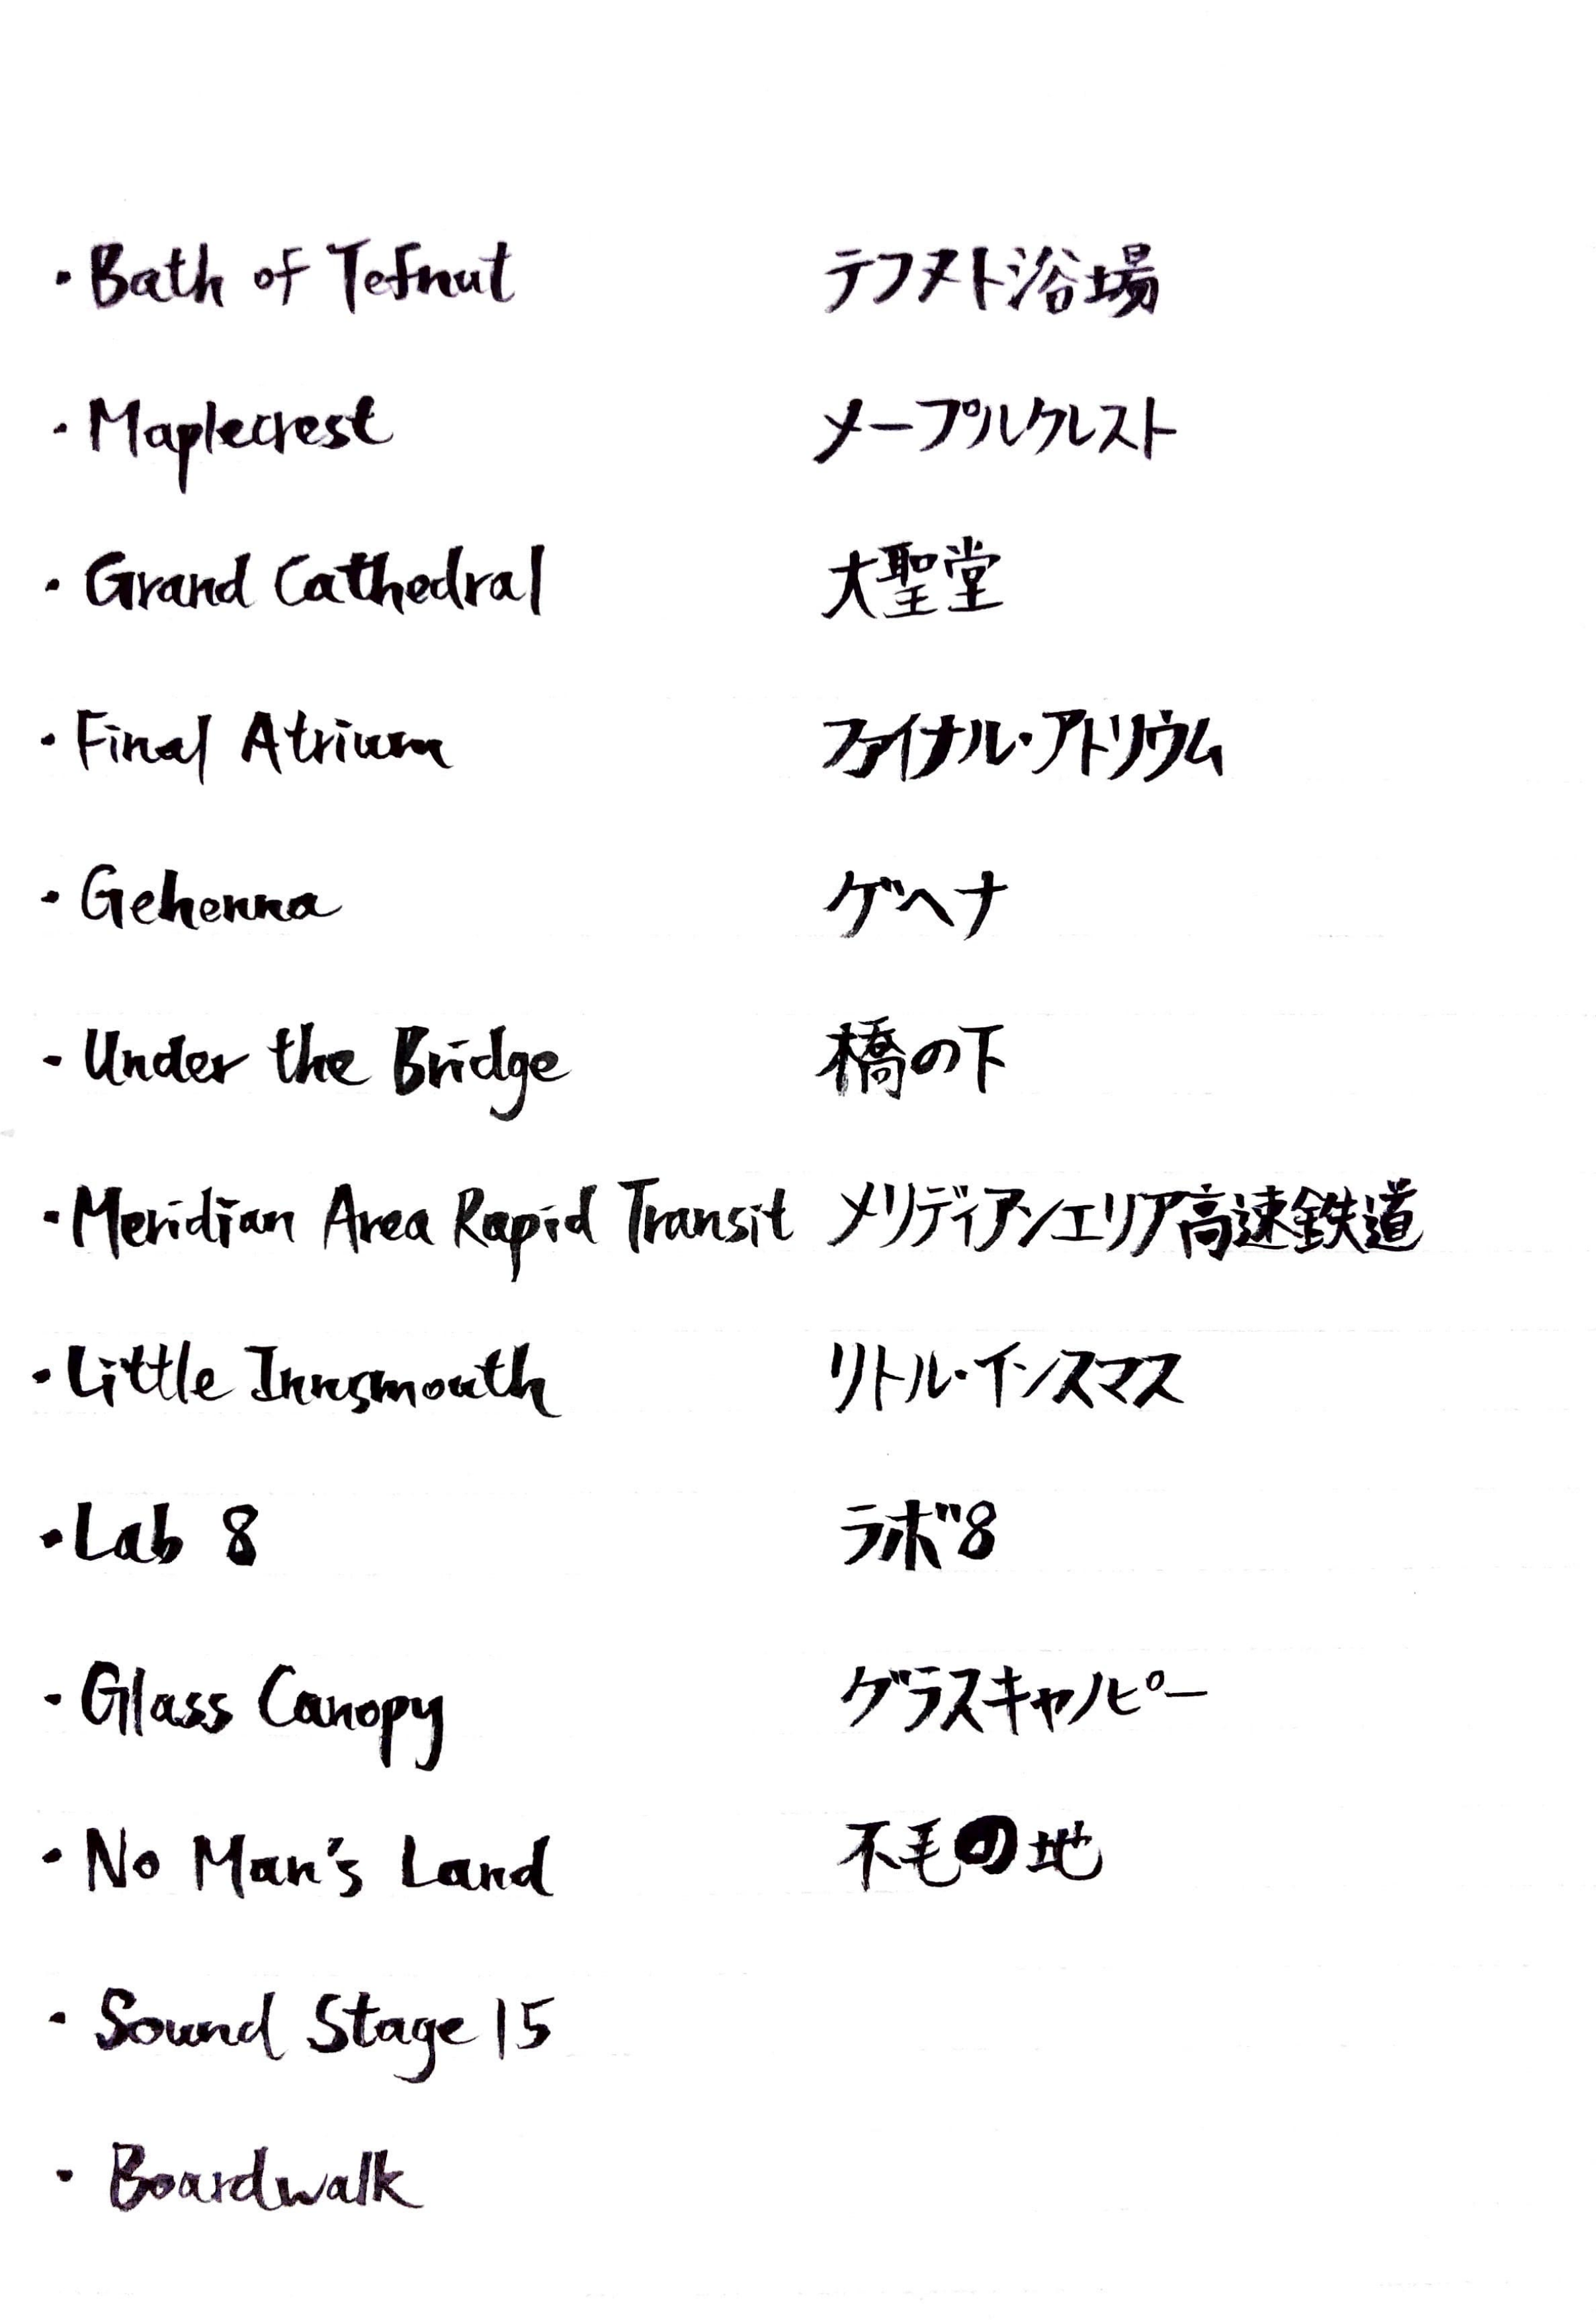 · Bath of Tefnut テフヌト浴場
· Maplecrest メープルクレスト
· Grand Cathedral 大聖堂
· Final Atrium ファイナル・アトリウム
· Gehenna ゲヘナ
· Under the Bridge 橋の下
· Meridian Area Rapid Transit メリディアンエリア高速鉄道
· Little Innsmouth リトル・インスマス
· Lab 8 ラボ8
· Glass Canopy グラスキャノピー
· No Man's Land 不毛の地
· Sound Stage 15
· Boardwalk